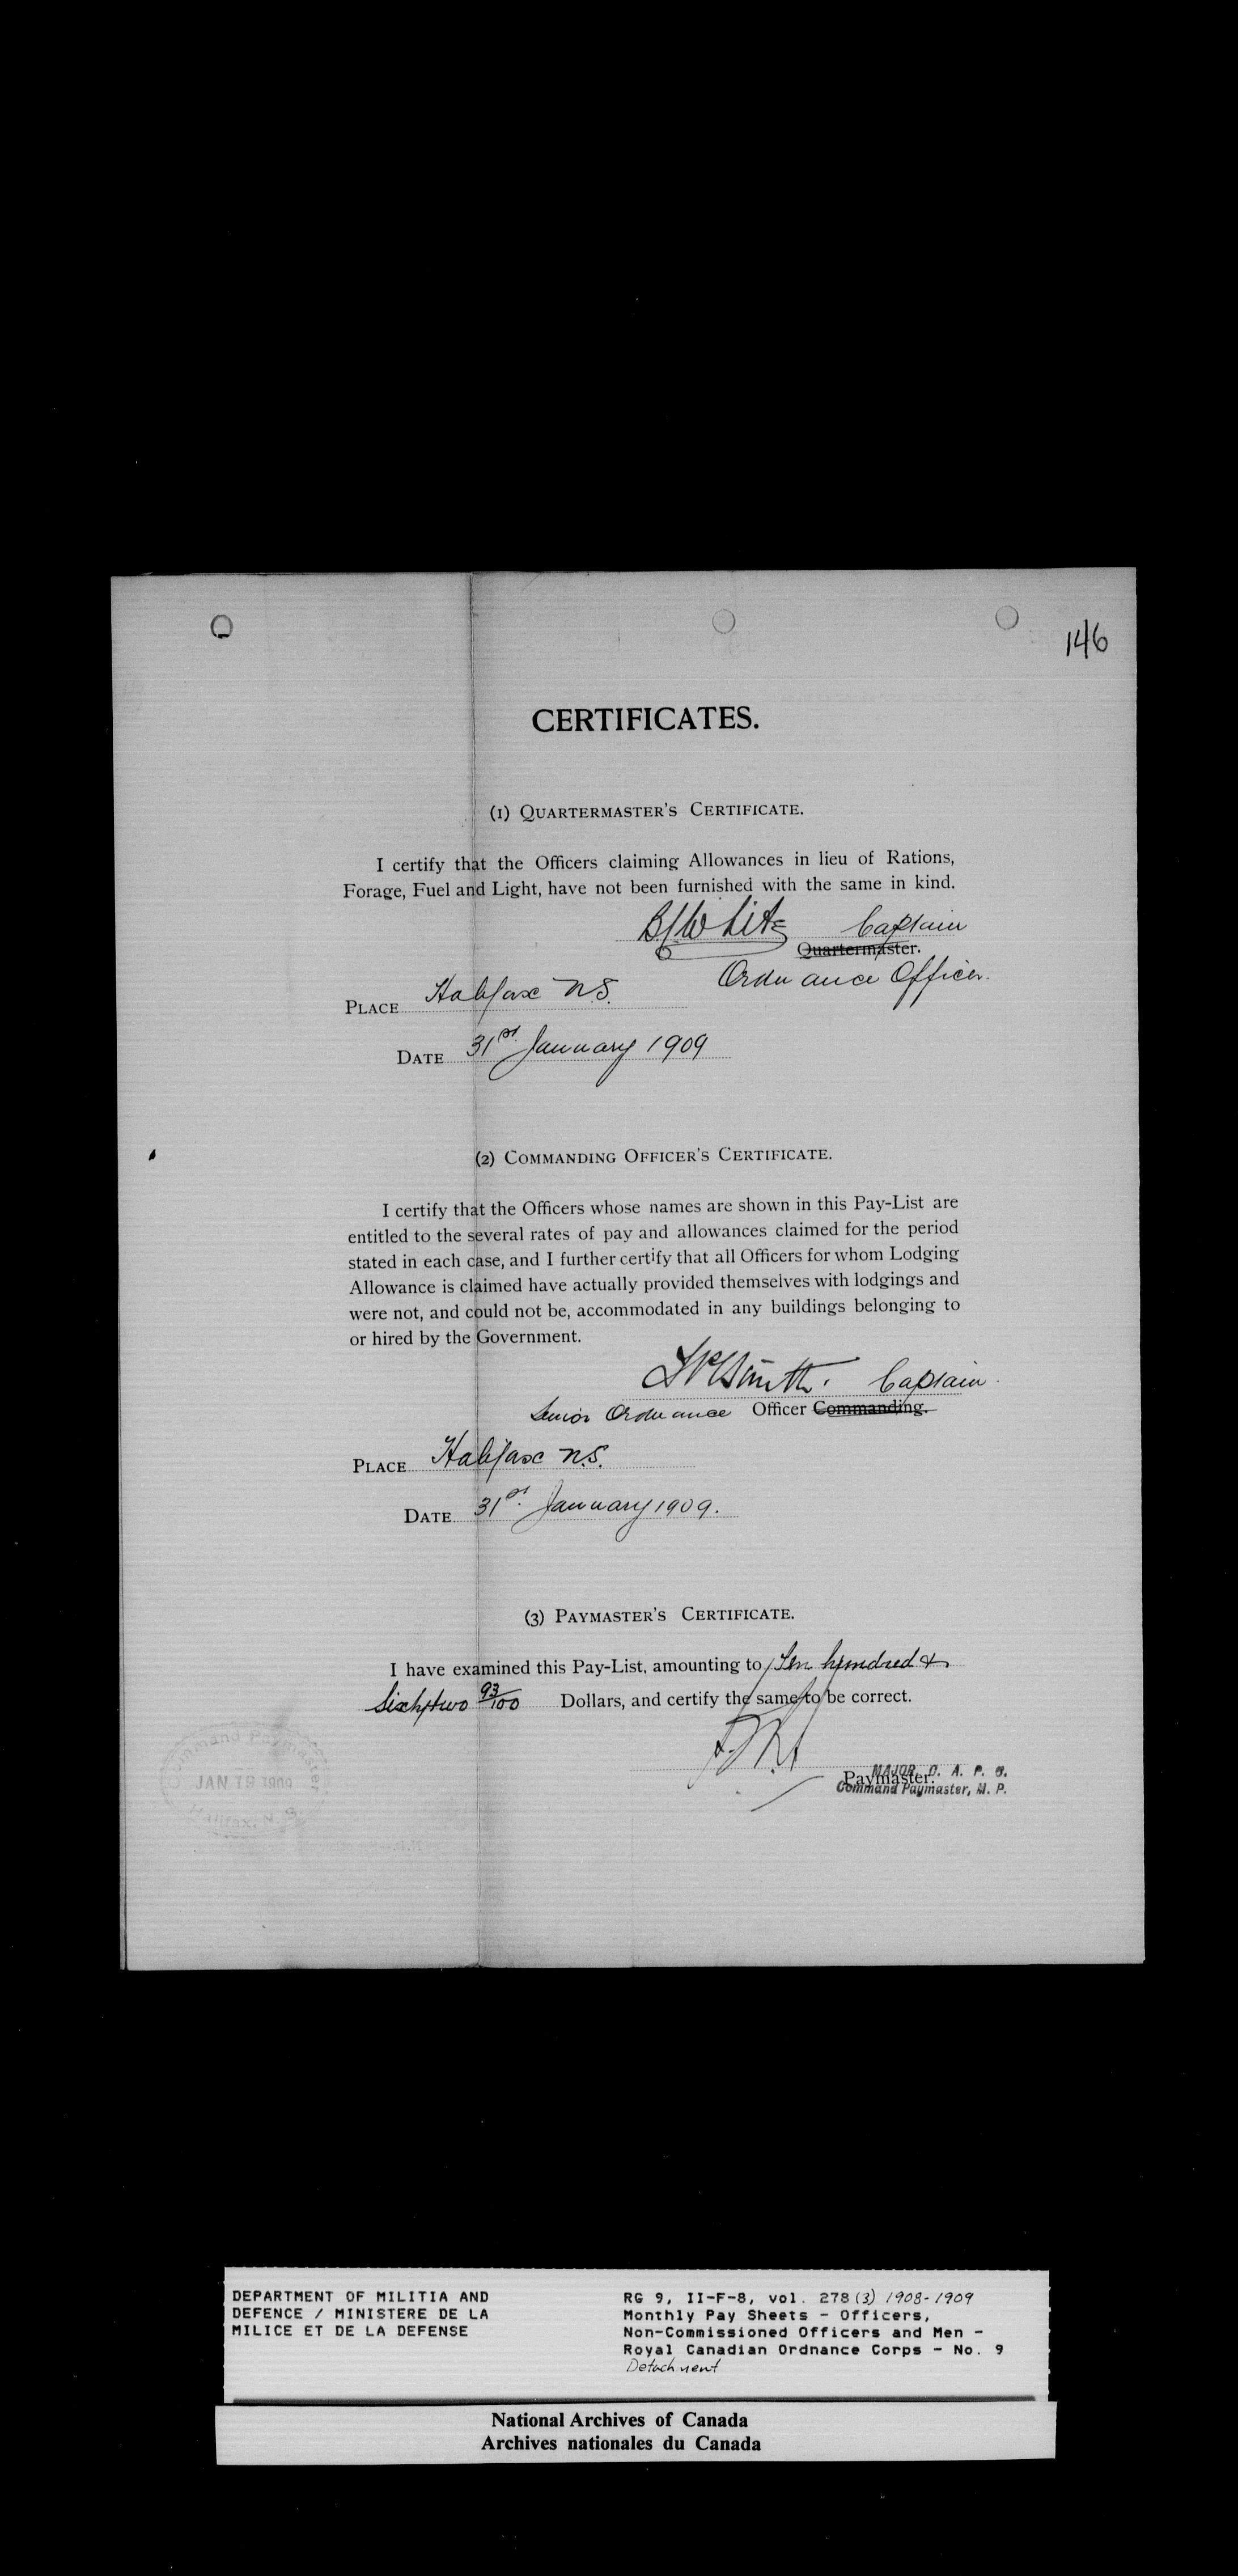 146
CERTIFICATES.
(1) QUARTERMASTER'S CERTIFICATE.
I certify that the Officers claiming Allowances in lieu of Rations,
Forage, Fuel and Light, have not been furnished with the same in kind.
Captain
Quartermaster.
Ordnance Officer.
PLACE Halifax N.S.
DATE 31st January 1909
(2) COMMANDING OFFICER'S CERTIFICATE.
I certify that the Officers whose names are shown in this Pay-List are
entitled to the several rates of pay and allowances claimed for the period
stated in each case, and I further certify that all Officers for whom Lodging
Allowance is claimed have actually provided themselves with lodgings and
were not, and could not be, accommodated in any buildings belonging to
or hired by the Government.
Smith. Captain.
Senior Ordnance Officer Commanding.
PLACE Halifax N.S.
DATE 31st January 1909.
(3) PAYMASTER'S CERTIFICATE.
I have examined this Pay-List, amounting to Ten hundred &
Sixty two 93/100 Dollars, and certify the same to be correct.
MAJOR, C. A. P. C.
Paymaster.
Command Paymaster, M. P.
Command Paymaster
JAN 19 1909
Halifax, N. S.
DEPARTMENT OF MILITIA AND
DEFENCE / MINISTERE DE LA
MILICE ET DE LA DEFENSE
RG 9, II-F-8, vol. 278 (3) 1908-1909
Monthly Pay Sheets - Officers,
Non-Commissioned Officers and Men -
Royal Canadian Ordnance Corps - No. 9
Detachment
National Archives of Canada
Archives nationales du Canada